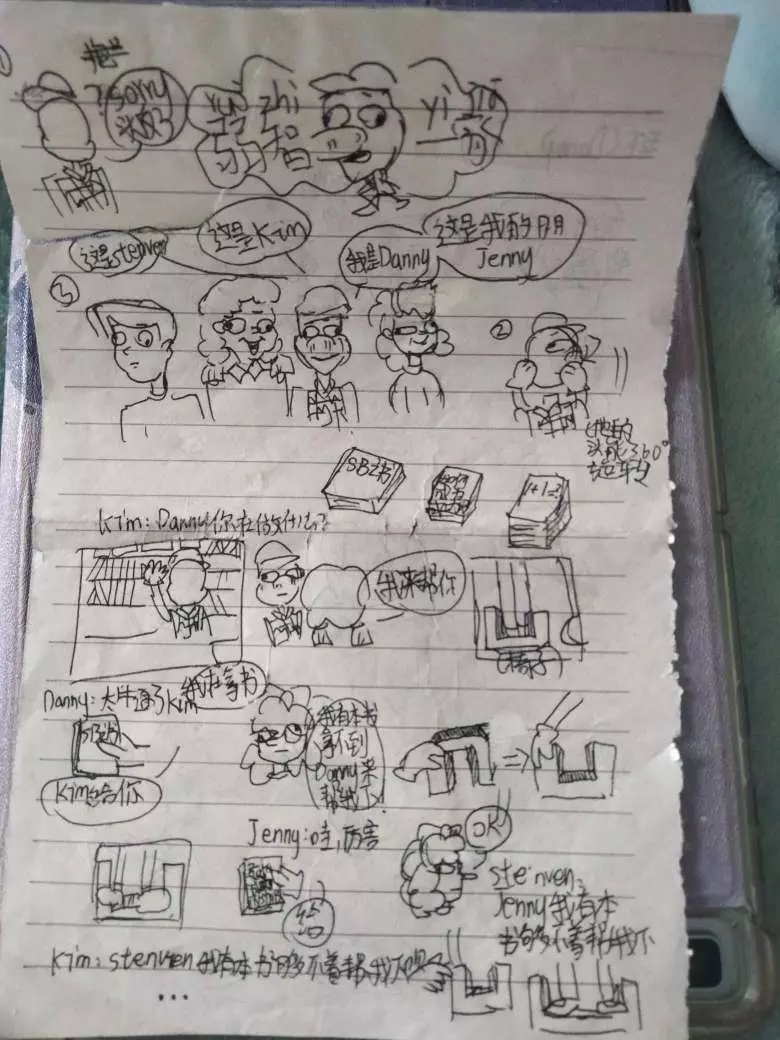 ①
sorry
yu zhi
yi 百
弱智
这是Kim
这是我的朋
Jenny
这是stenven
我是Danny
③
②
头能360°
SB之书
1+1=2
Kim: Danny你在做什么?
我来帮你
(椅子)
我在拿书
Danny: 太牛逼了Kim
我有本书
拿不到
Danny来
帮我下!
Kim给你
Jenny:哇,厉害
OK
给
stenven:
Jenny我有本
书够不着帮我下
Kim: stenven我有本书够不着帮我下呗
...